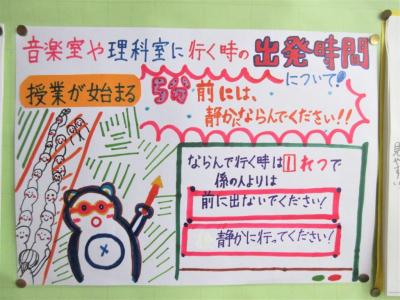 音楽室や理科室に行く時の出発時間
について!
授業が始まる
5分前には、
静かにならんでください!!
ならんで行く時は1れつで
係の人よりは
前に出ないでください!
静かに行ってください!
見やすい